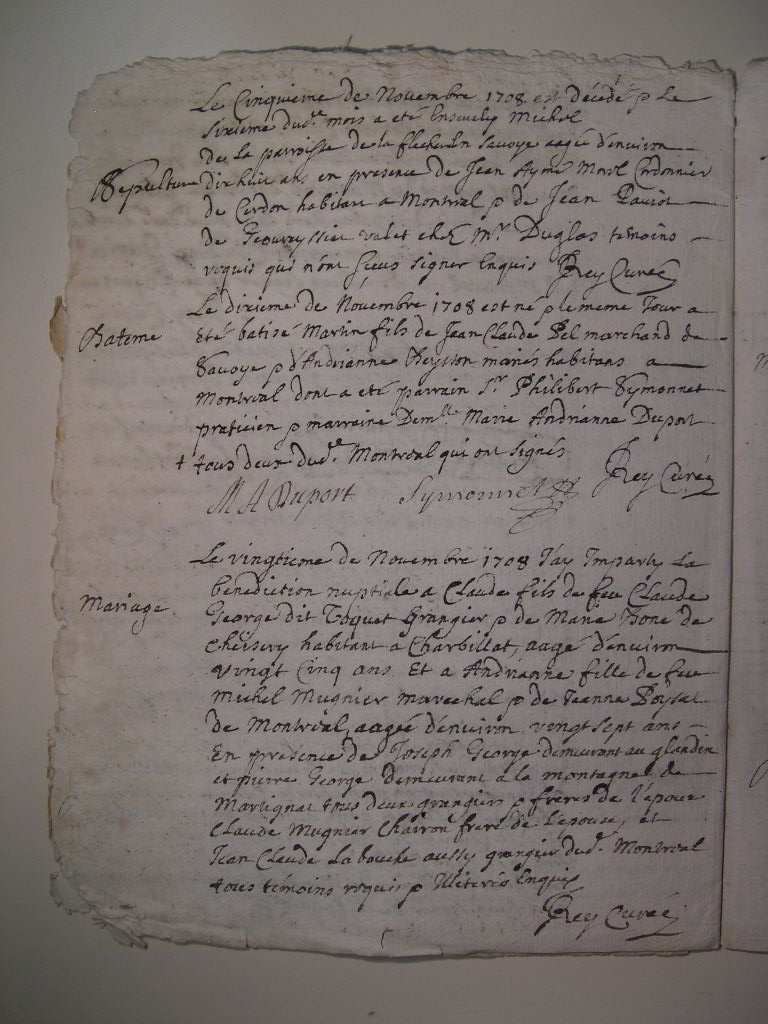 Le Cinquieme de Novembre 1708 est décédé p Le
Sixieme dud.t mois a eté Ensevely Michel
De La parroisse de la flechere En Savoye aagé d'environ
Sepulture
Dix huit ans en presence de Jean Aymé Cordonnier
de Cerdon habitant a Montreal p de Jean
de Geovreyssiet valet chez Mr. Duglas temoins
requis qui n'ont sceus signer Enquis JRey Curé
Le dixieme de Novembre 1708 est né p le meme Jour a
Bateme
Eté batisé Martin fils de Jean Claude Pel marchand de
Savoye p d'Andrianne mariés habitans a
Montreal dont a eté parrain Sr. Philibert Symonnet
praticien p marraine Dem.lle Marie Andrianne Duport
+ tous deux dud.t Montreal qui ont signés
JRey Curé
M A Duport Symonnet
Le vingt de Novembre 1708 J'ay Imparty La
benediction nuptiale a Claude fils de feu Claude
Mariage
George dit Toquet Grangier p de Marie de
Cheisery habitant a Charbillat, aagé d'environ
vingt Cinq ans Et a Andrianne fille de feu
Michel Mugnier marechal p de Jeanne
de Montreal, aagée d'environ vingt sept ans
En presence de Joseph George demeurant au glandin
et pierre George demeurant a la montagne de
Martignat tous deux grangiers p freres de l'epoux
Claude Mugnier Charron frere de L'epouse, et
Jean Claude Labouche aussy grangier dud.t Montreal
tous témoins requis p Illiterés Enquis
JRey Curé